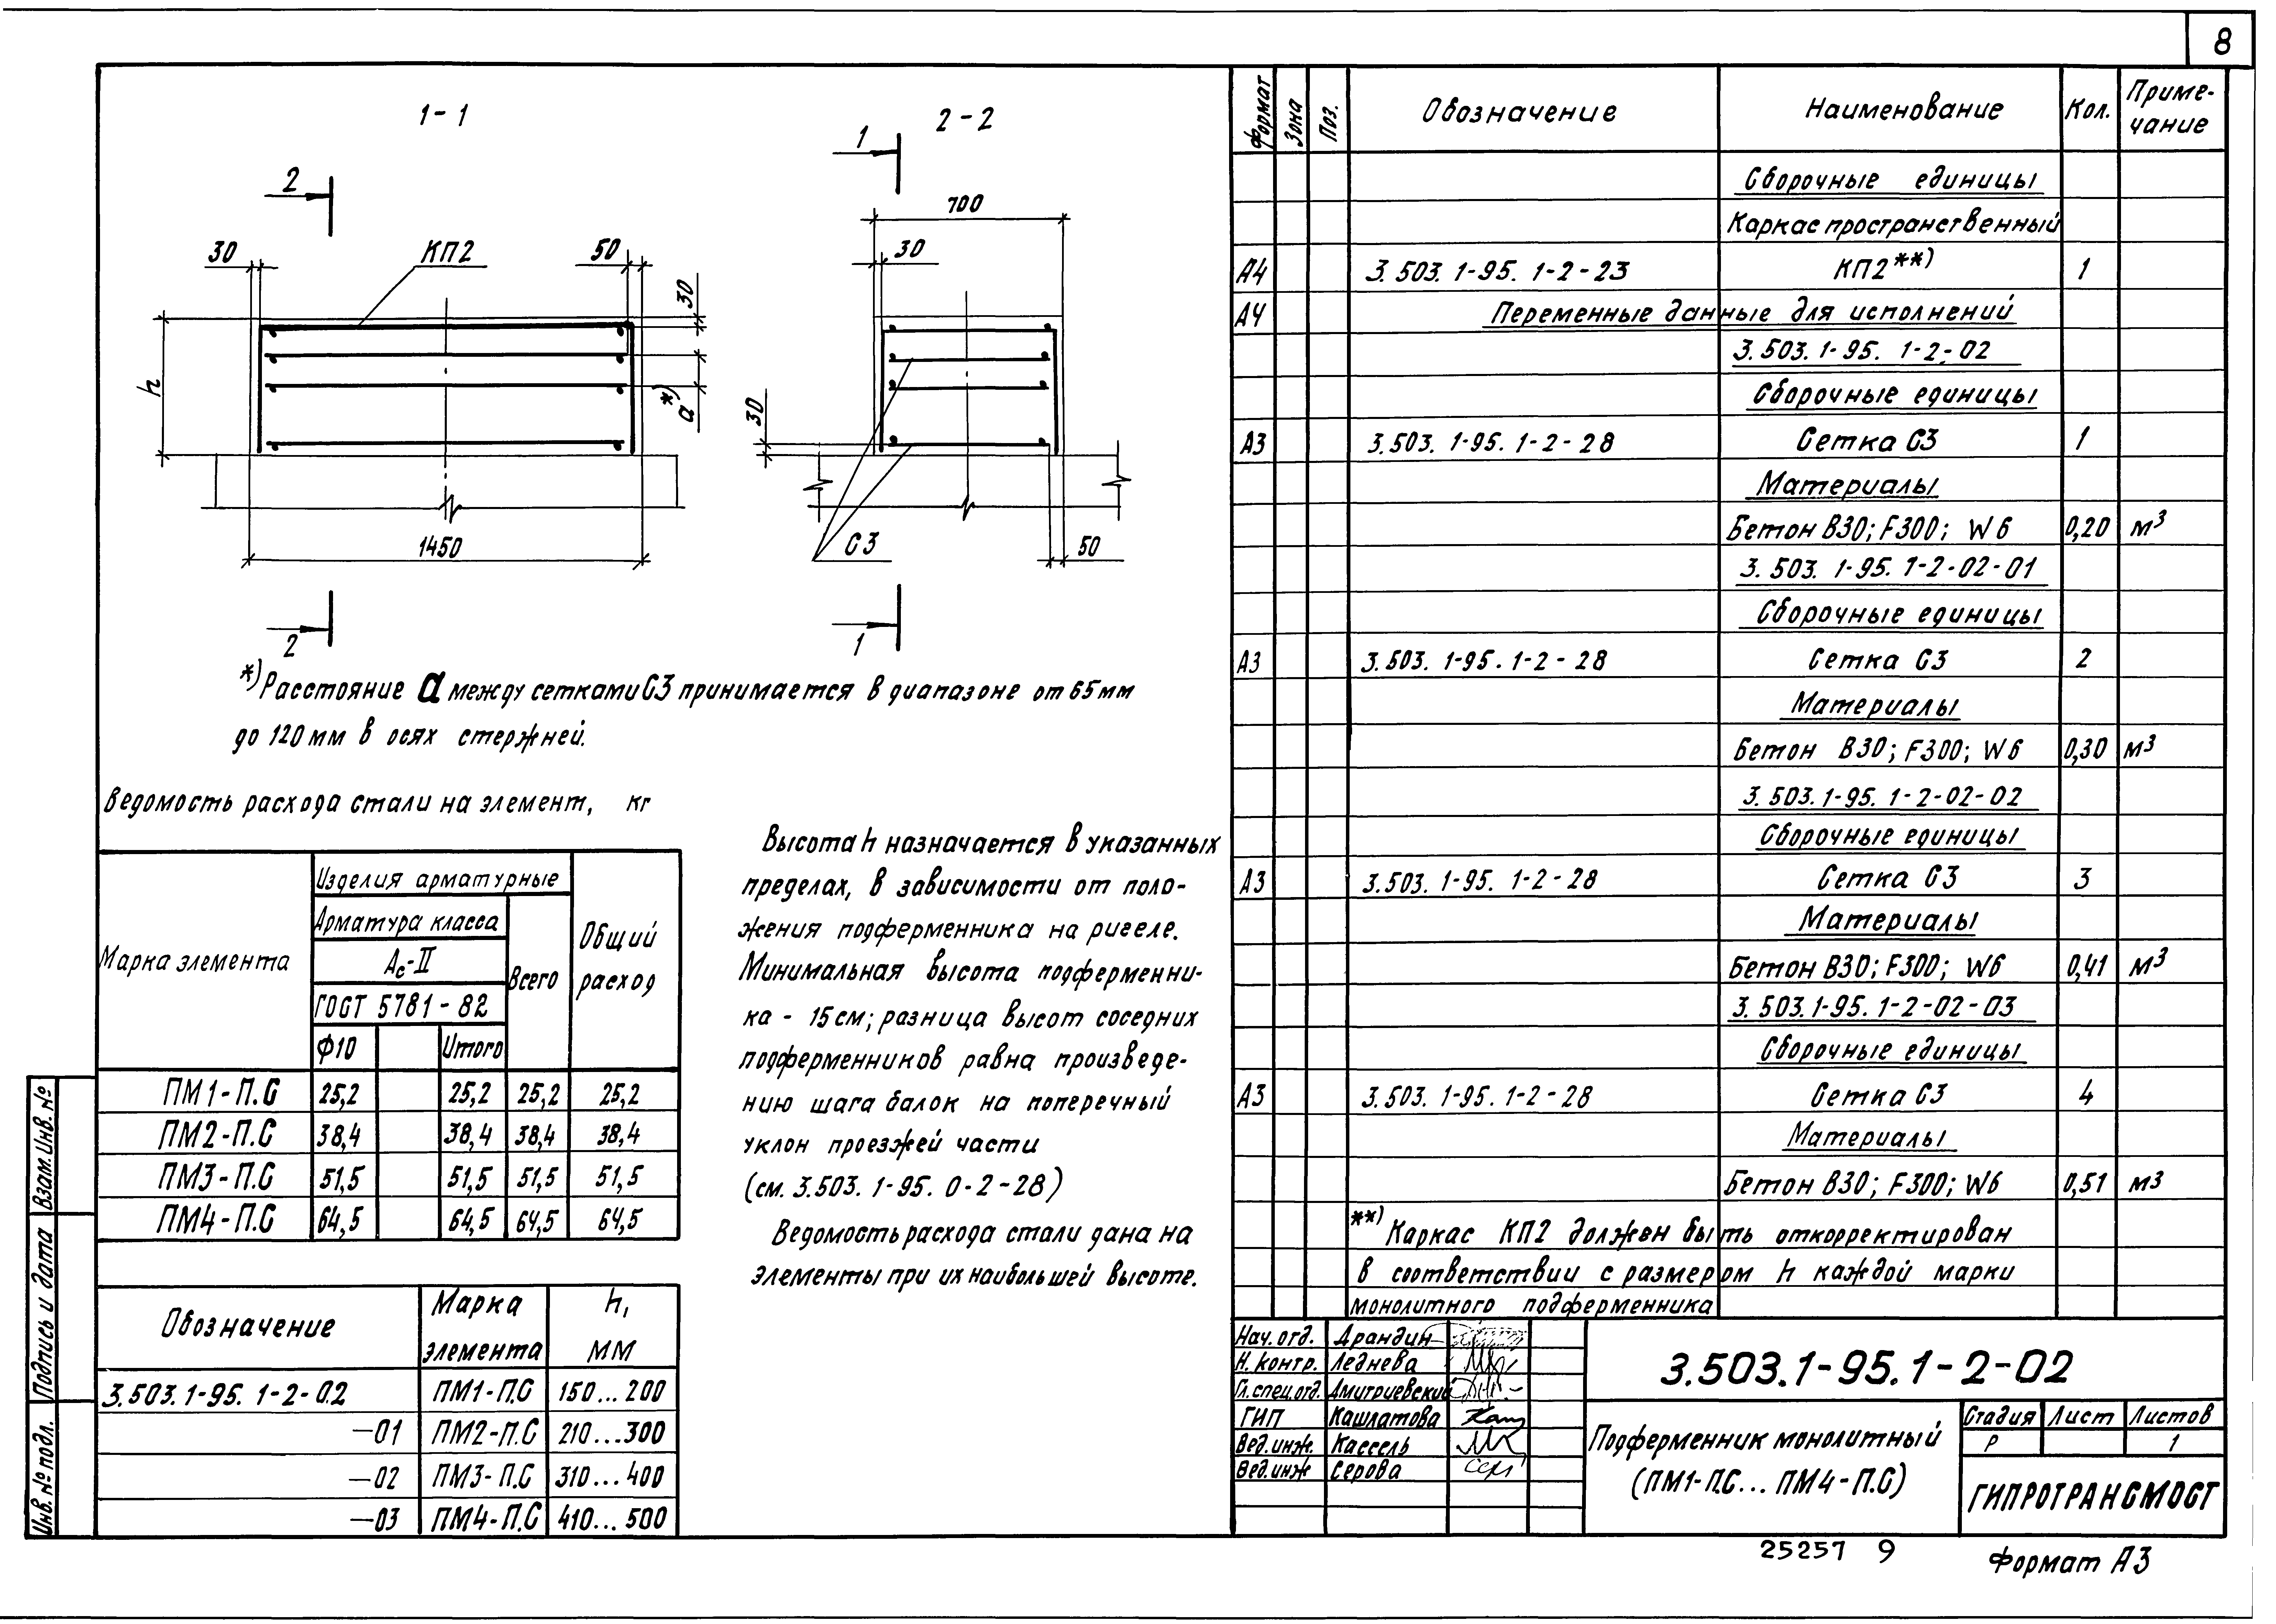 8
1-1
2
30
КП2
50
30
h
а*)
1450
2
2-2
1
700
30
30
С3
50
1
*) Расстояние а между сетками С3 принимается в диапазоне от 65мм
до 120мм в осях стержней.
Ведомость расхода стали на элемент, кг
Марка элемента
Изделия арматурные
Арматура класса
Ас-II
ГОСТ 5781-82
Ф10
Итого
Всего
Общий
расход
ПМ1-П.С 25,2 25,2 25,2 25,2
ПМ2-П.С 38,4 38,4 38,4 38,4
ПМ3-П.С 51,5 51,5 51,5 51,5
ПМ4-П.С 64,5 64,5 64,5 64,5
Обозначение
Марка
элемента
h,
мм
3.503.1-95.1-2-02 ПМ1-П.С 150...200
-01 ПМ2-П.С 210...300
-02 ПМ3-П.С 310...400
-03 ПМ4-П.С 410...500
Высота h назначается в указанных
пределах, в зависимости от поло-
жения подферменника на ригеле.
Минимальная высота подферменни-
ка - 15см; разница высот соседних
подферменников равна произведе-
нию шага балок на поперечный
уклон проезжей части
(см. 3.503.1-95.0-2-28)
Ведомость расхода стали дана на
элементы при их наибольшей высоте.
Формат
Зона
Поз.
Обозначение
Наименование
Кол.
Приме-
чание
Сборочные единицы
Каркас пространственный
А4 3.503.1-95.1-2-23 КП2**) 1
А4 Переменные данные для исполнений
3.503.1-95.1-2-02
Сборочные единицы
А3 3.503.1-95.1-2-28 Сетка С3 1
Материалы
Бетон В30; F300; W6 0,20 м3
3.503.1-95.1-2-02-01
Сборочные единицы
А3 3.503.1-95.1-2-28 Сетка С3 2
Материалы
Бетон В30; F300; W6 0,30 м3
3.503.1-95.1-2-02-02
Сборочные единицы
А3 3.503.1-95.1-2-28 Сетка С3 3
Материалы
Бетон В30; F300; W6 0,41 м3
3.503.1-95.1-2-02-03
Сборочные единицы
А3 3.503.1-95.1-2-28 Сетка С3 4
Материалы
Бетон В30; F300; W6 0,51 м3
**) Каркас КП2 должен быть откорректирован
в соответствии с размером h каждой марки
монолитного подферменника
Нач. отд. Драндин
Н. контр. Леднева
Гл. спец. отд. Дмитриевский
ГИП Кашлатова
Вед. инж. Кассель
Вед. инж Серова
3.503.1-95.1-2-02
Подферменник монолитный
(ПМ1-П.С... ПМ4-П.С)
Стадия Лист Листов
Р 1
ГИПРОТРАНСМОСТ
25257 9
Формат А3
Взам. Инв. №
Подпись и дата
Инв. № подл.